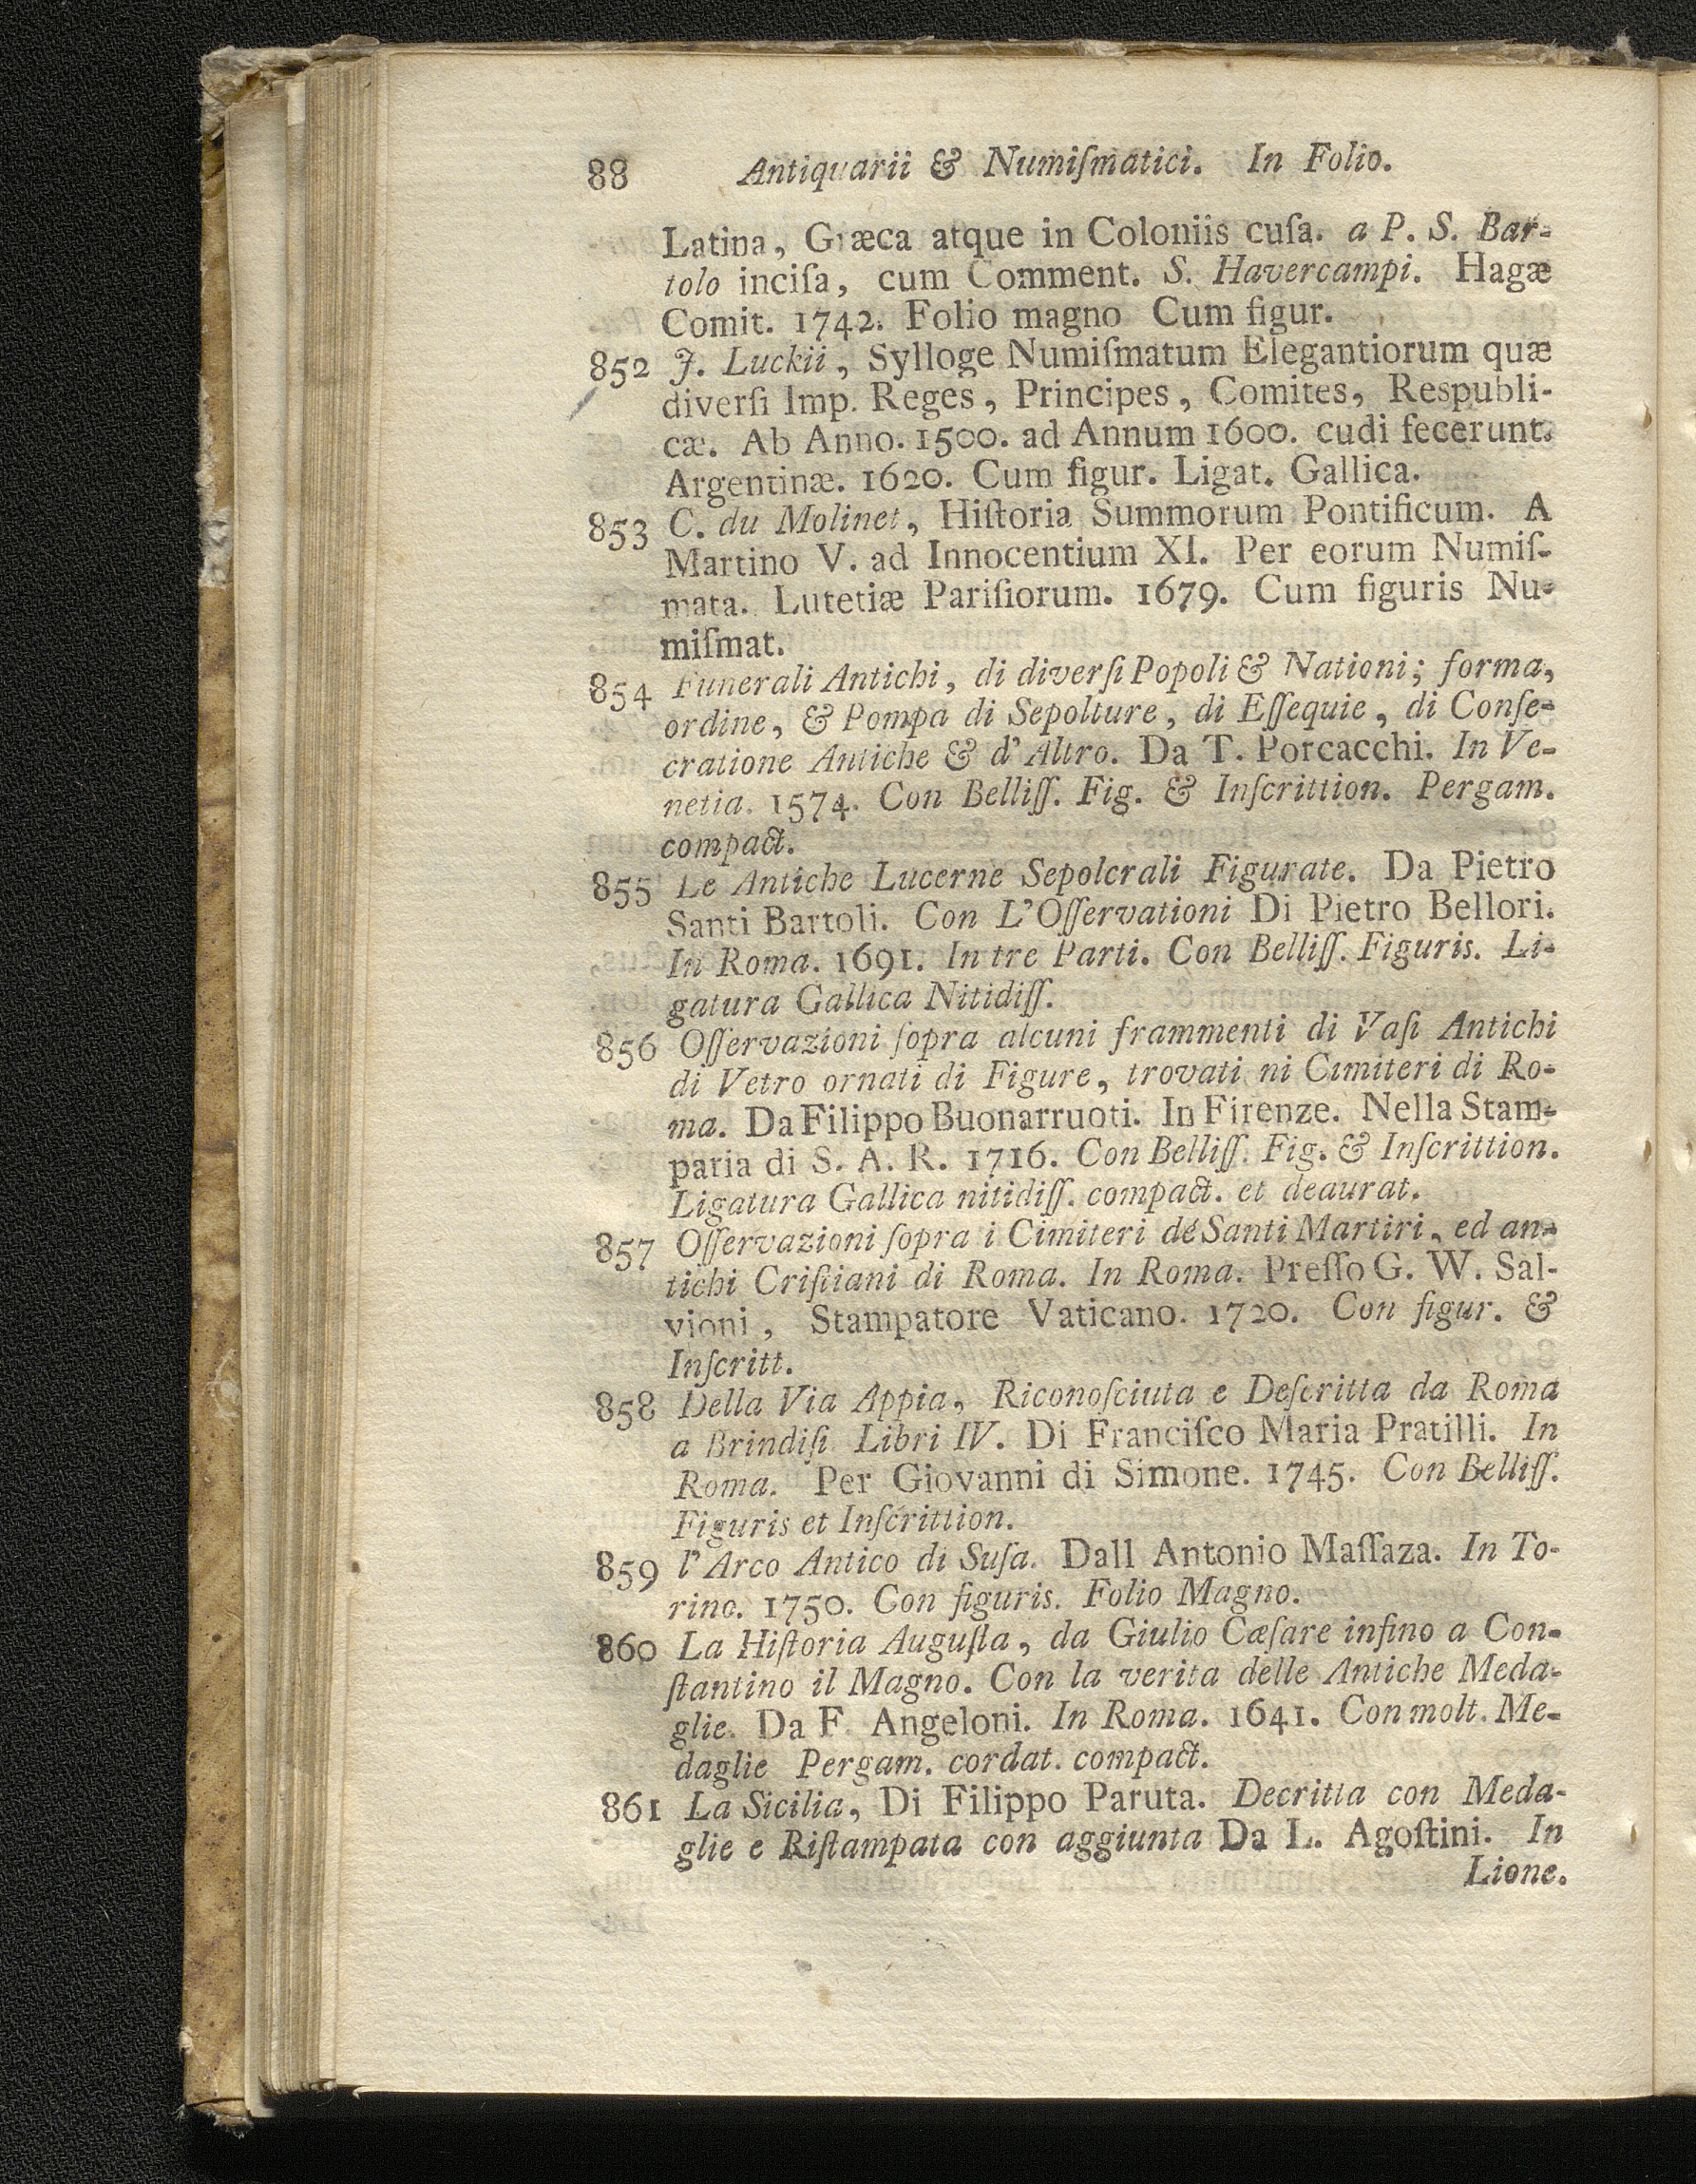 88 Antiquarii & Numiſmatici. In Folio.
Latina, Græca atque in Coloniis cuſa. a P. S. Bar-
tolo inciſa, cum Comment. S. Havercampi. Hagæ
Comit. 1742. Folio magno Cum figur.
852 J. Luckii, Sylloge Numiſmatum Elegantiorum quæ
diverſi Imp. Reges, Principes, Comites, Respubli-
cæ. Ab Anno. 1500. ad Annum 1600. cudi fecerunt.
Argentinæ. 1620. Cum figur. Ligat. Gallica.
853 C. du Molinet, Hiſtoria Summorum Pontificum. A
Martino V. ad Innocentium XI. Per eorum Numiſ-
mata. Lutetiæ Pariſiorum. 1679. Cum figuris Nu-
miſmat.
854 Funerali Antichi, di diverſi Popoli & Nationi; forma,
ordine, & Pompa di Sepolture, di Eſſequie, di Conſe-
cratione Antiche & d' Altro. Da T. Porcacchi. In Ve-
netia. 1574. Con Belliſſ. Fig. & Inſcrittion. Pergam.
compact.
855 Le Antiche Lucerne Sepolcrali Figurate. Da Pietro
Santi Bartoli. Con L'Oſſervationi Di Pietro Bellori.
In Roma. 1691. In tre Parti. Con Belliſſ. Figuris. Li-
gatura Gallica Nitidiſſ.
856 Oſſervazioni ſopra alcuni frammenti di Vaſi Antichi
di Vetro ornati di Figure, trovati ni Cimiteri di Ro-
ma. Da Filippo Buonarruoti. In Firenze. Nella Stam-
paria di S. A. R. 1716. Con Belliſſ. Fig. & Inſcrittion.
Ligatura Gallica nitidiſſ. compact. et deaurat.
857 Oſſervazioni ſopra i Cimiteri dé Santi Martiri, ed an-
tichi Criſtiani di Roma. In Roma. Preſſo G. W. Sal-
vioni, Stampatore Vaticano. 1720. Con figur. &
Inſcritt.
858 Della Via Appia, Riconoſciuta e Deſcritta da Roma
a Brindiſi Libri IV. Di Franciſco Maria Pratilli. In
Roma. Per Giovanni di Simone. 1745. Con Belliſſ.
Figuris et Inſcrittion.
859 l'Arco Antico di Suſa. Dall Antonio Maſſaza. In To-
rino. 1750. Con figuris. Folio Magno.
860 La Hiſtoria Auguſta, da Giulio Cæſare infino a Con-
ſtantino il Magno. Con la verita delle Antiche Meda-
glie. Da F. Angeloni. In Roma. 1641. Con molt. Me-
daglie Pergam. cordat. compact.
861 La Sicilia, Di Filippo Paruta. Decritta con Meda-
glie e Riſtampata con aggiunta Da L. Agoſtini. In
Lione.